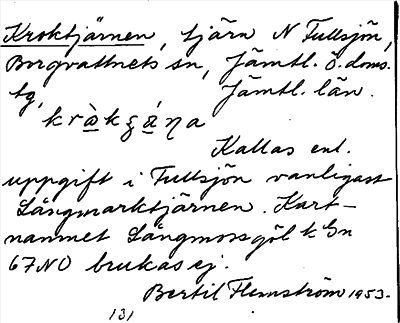 Kroktjärnen, tjärn N Fullsjön,
Borgvattnets sn, Jämtl. ö. doms.
tg, Jämtl. län.
Kallas enl.
uppgift i Fullsjön vanligast
Långmarktjärnen. Kart-
namnet Långmossgöl
67 NO brukas ej.
Bertil Flemström 1953.
131